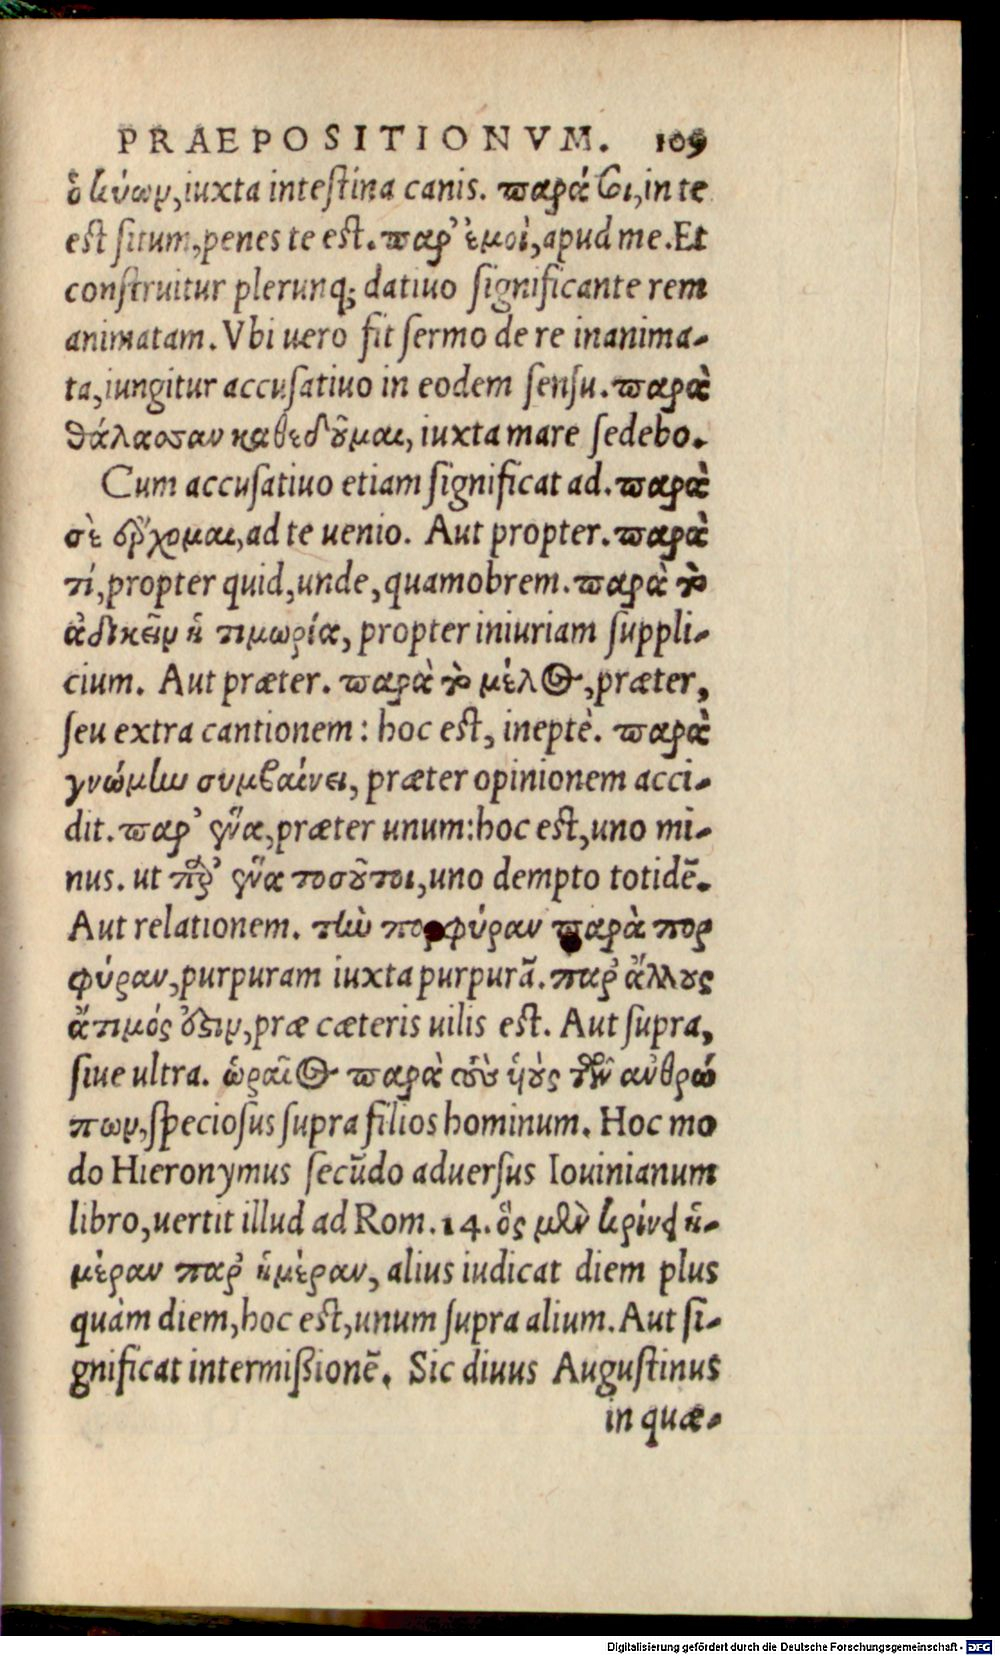 PRAEPOSITIONVM. 109
ὁ κύων, iuxta intestina canis. παρά σοι, in te
est situm, penes te est. παρ' ἐμοὶ, apud me. Et
construitur plerunq; dativo significante rem
animatam. Vbi uero fit sermo de re inanima-
ta, iungitur accusativo in eodem sensu. παρὰ
θάλασσαν καθεδοῦμαι, iuxta mare sedebo.
Cum accusativo etiam significat ad. παρὰ
σὲ ἔρχομαι, ad te uenio. Aut propter. παρὰ
τί, propter quid, unde, quamobrem. παρὰ τὸ
ἀδικεῖν ἡ τιμωρία, propter iniuriam suppli-
cium. Aut præter. παρὰ τὸ μέλος, præter,
seu extra cantionem: hoc est, ineptè. παρὰ
γνώμην συμβαίνει, præter opinionem acci-
dit. παρ' ἕνα, præter unum: hoc est, uno mi-
nus. ut παρ' ἕνα τοσοῦτοι, uno dempto totidē.
Aut relationem. τὴν πορφύραν παρὰ πορ
φύραν, purpuram iuxta purpurā. παρ' ἄλλους
ἄτιμός ἐστιν, præ cæteris uilis est. Aut supra,
siue ultra. ὡραῖος παρὰ τοὺς ὑιοὺς τῶν ἀνθρώ
πων, speciosus supra filios hominum. Hoc mo
do Hieronymus secūdo adversus Iouinianum
libro, uertit illud ad Rom. 14. ὃς μὲν κρίνει ἡ-
μέραν παρ' ἡμέραν, alius iudicat diem plus
quàm diem, hoc est, unum supra alium. Aut si-
gnificat intermißionē. Sic divus Augustinus
in quæ-
Digitalisierung gefördert durch die Deutsche Forschungsgemeinschaft - DFG